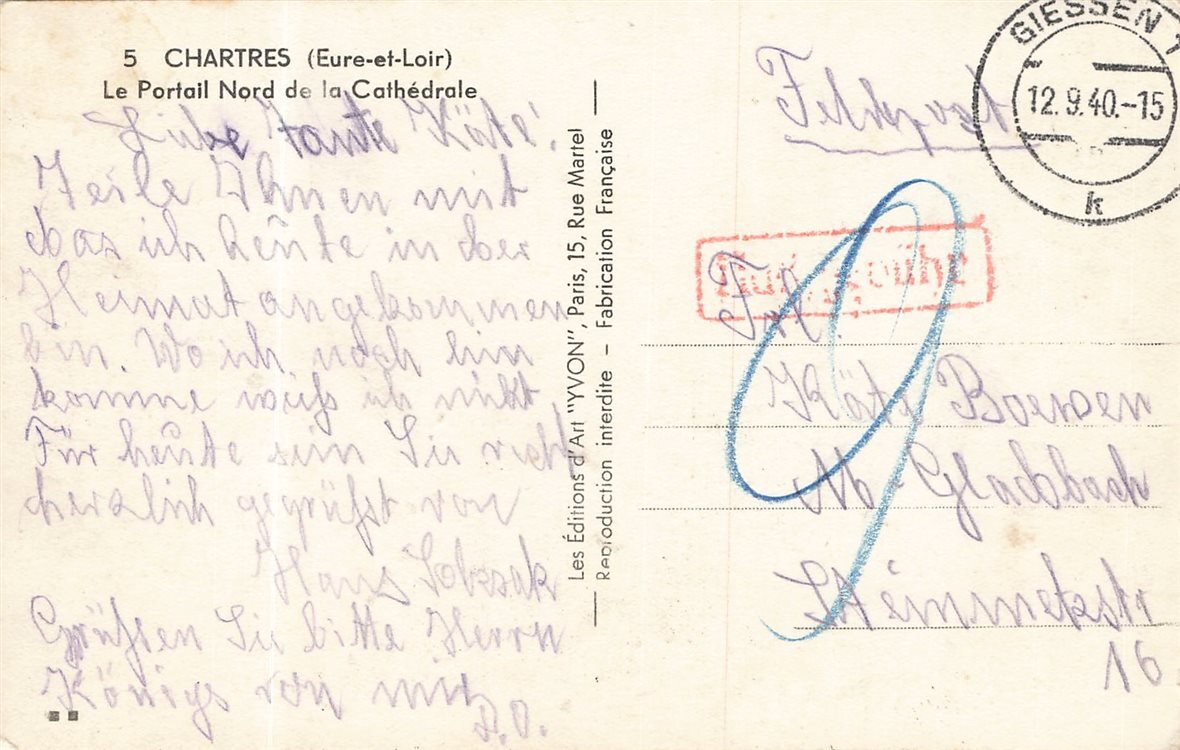 5 CHARTRES (Eure-et-Loir)
Le Portail Nord de la Cathédrale
Liebe Tante Käte!
Teile Ihnen mit
das ich heute in der
Heimat angekommen
bin. Wo ich noch hin
komme weiß ich nicht
Für heute sein Sie recht
herzlich gegrüßt von
Hans
Grüßen Sie bitte Herrn
Königs von mir
Les Éditions d'Art "YVON", Paris, 15, Rue Martel
Reproduction interdite – Fabrication Française
GIESSEN 1
12.9.40.-15
k
Feldpost
Frl.
Käte Boersen
M.-Gladbach
16